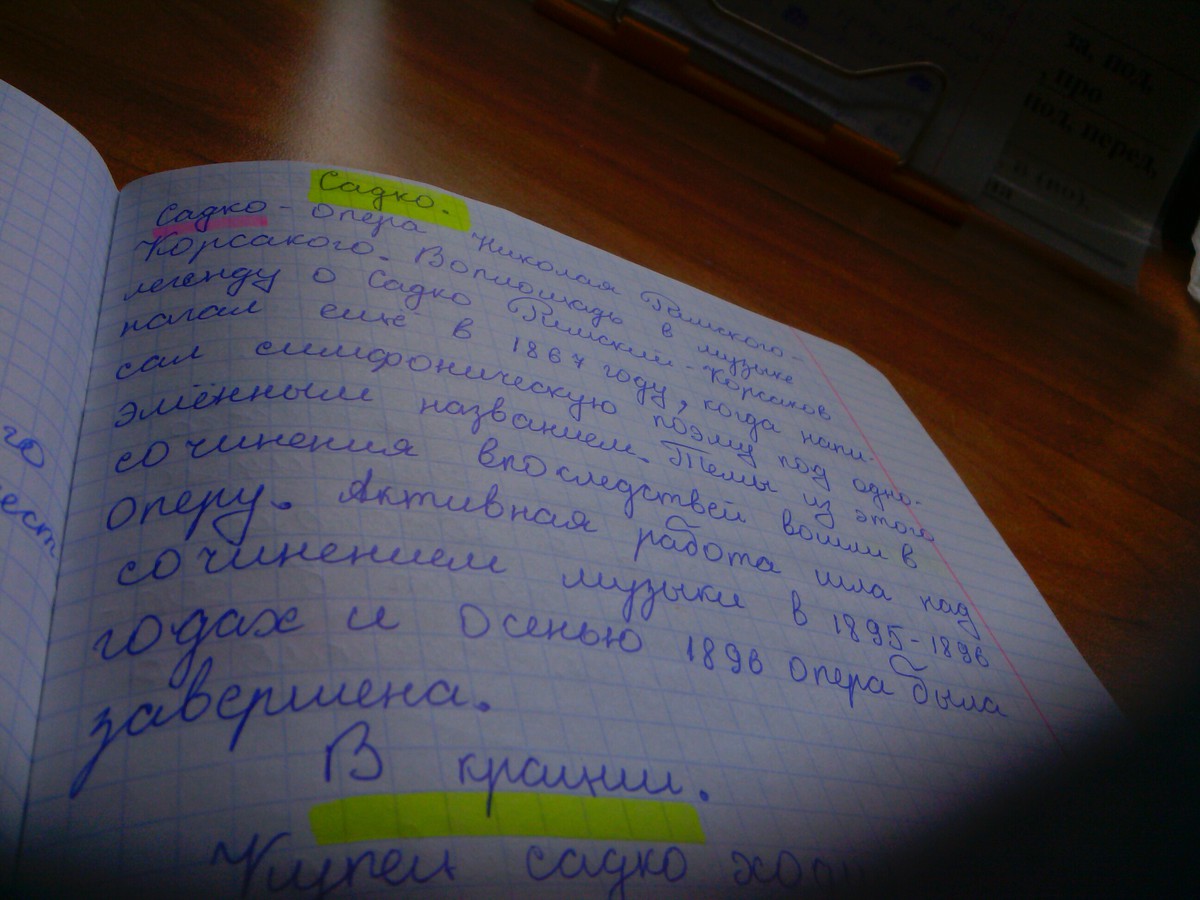 Садко.
Садко - опера Николая Римского-
Корсакого. Воплощадь в музыке
легенду о Садко Римский-Корсаков
начал ещё в 1867 году, когда напи-
сал симфоническую поэму под одно-
эмённым названием. Темы из этого
сочинения впоследствей вошли в
оперу. Активная работа шла над
сочинением музыки в 1895-1896
годах и осенью 1896 опера была
завершена.
В крации.
Купец садко
го
ест
та, под,
, про
под, перед,